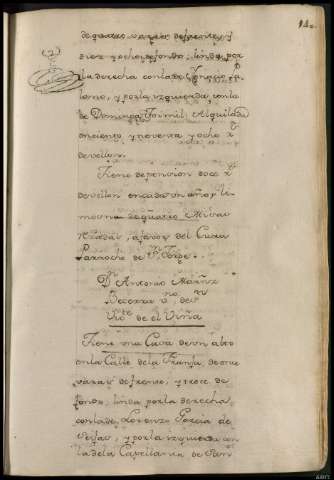 de quatro varas de frente, y
diez y ocho de fondo; linda por
la derecha con la de
y por la izquierda con la
de Dominga Formil; Alquilada
en ciento y noventa y ocho rs
de vellon
Tiene de pension doce rs
de vellon en cada un año y li
mosna de quatro Misas
rezadas, a favor del Cura
Parroco de Sn Jorge.
Dn Antonio
Becerra vno, de Sn
de el Viña
Tiene una Casa de un alto
en la Calle de la Franja, de once
varas de frente, y trece de
fondo, linda por la derecha,
con la de Lorenzo Garcia de
Seijas, y por la izquierda con
la de la Capellania de San